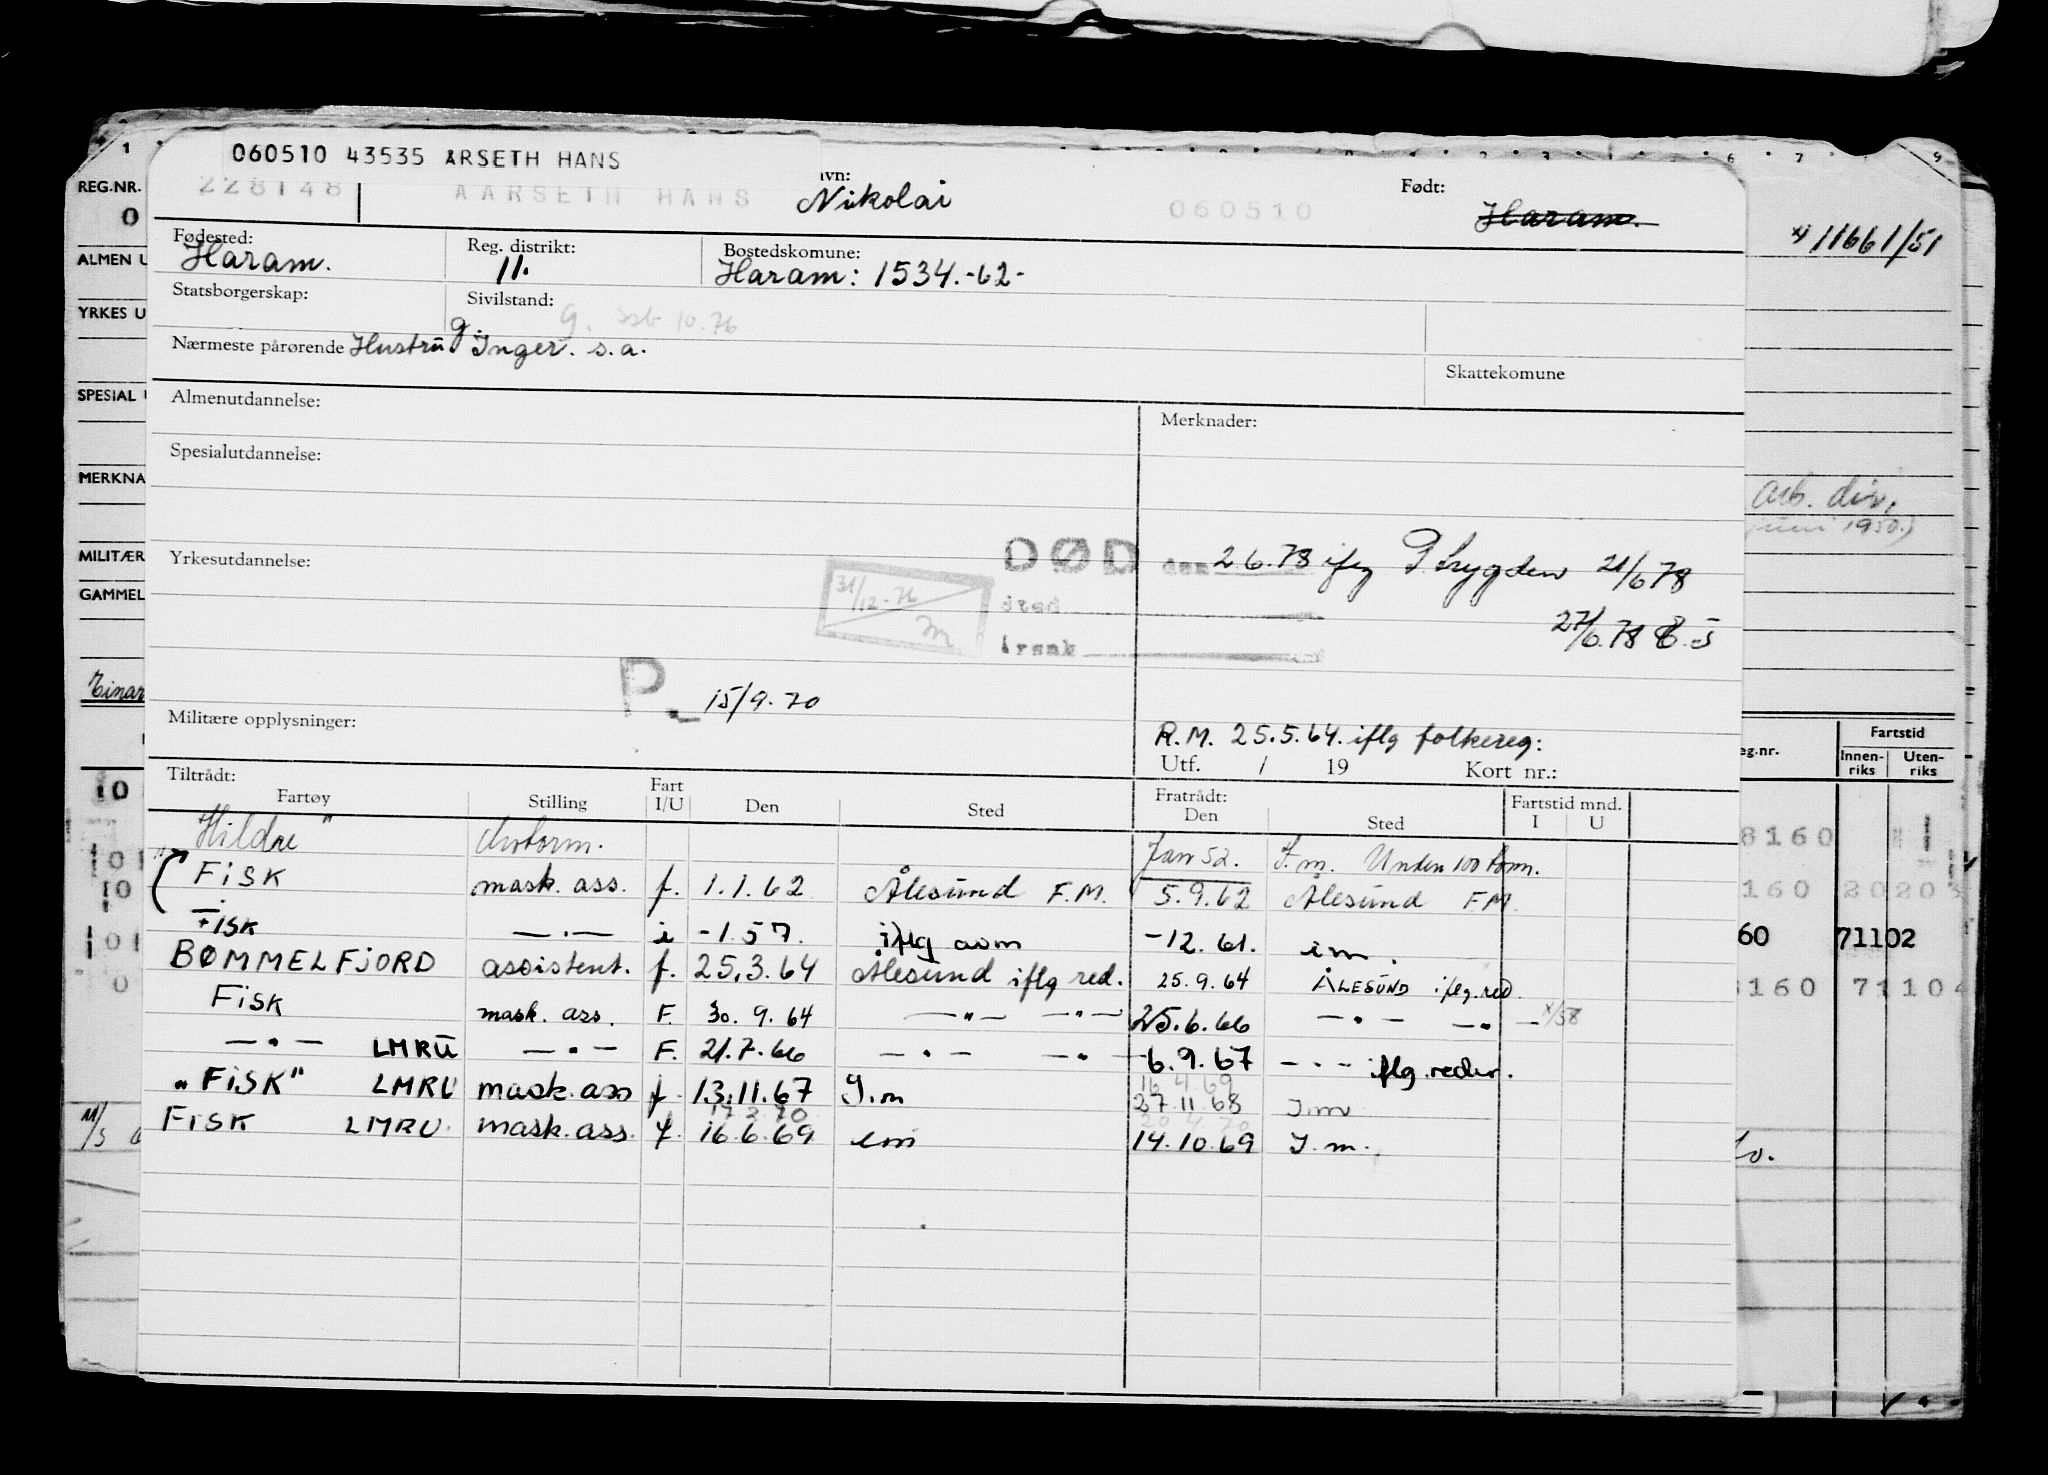 060510 43535 ARSETH HANS
228148 AARSETH HANS Nikolai 060510 Født: Haram.
Fødested: Haram. Reg. distrikt: 11. Bostedskomune: Haram: 1534.-62-
Statsborgerskap: Sivilstand: g. g. ssb 10.76
Nærmeste pårørende Hustru Inger. s.a.
Skattekomune
Almenutdannelse: Merknader:
Spesialutdannelse:
Yrkesutdannelse:
DØD den 2.6.78 iflg P. trygden 21/6 78
31/12-76 sted
27/6.78
årsak
P. 15/9.70
Militære opplysninger:
R.M. 25.5.64. iflg folkereg:
Utf. / 19 Kort nr.:
Tiltrådt: Fratrådt: Fartstid mnd.
Fartøy Stilling Fart I/U Den Sted Den Sted I U
"Hildre" Motorm. Jan 52. I.m. Under 100 tonn.
FISK mask. ass. f. 1.1.62 Ålesund F.M. 5.9.62 Ålesund F.M.
FISK —.— i -1.57. iflg -12.61. i.m.
BØMMELFJORD assistent. f. 25.3.64 Ålesund iflg red. 25.9.64 ÅLESUND iflg. red.
FISK mask. ass. F. 30.9.64 —"— —"— 25.6.66 —"— —"— x/58
—"— LMRU —"— F. 21.7.66 —"— —"— 6.9.67 —"— iflg. reder.
"FISK" LMRU mask. ass f. 13.11.67 I.m 27.11.68 I.m
16.4.69
17.2.70 20.4.70
FISK LMRU. mask. ass. f. 16.6.69 im 14.10.69 I.m.
REG.NR.
0
ALMEN U
YRKES U
SPESIAL
MERKNA
MILITÆR
GAMMEL
Einar
x) 11661/51
arb. div.
1950.)
eg.nr. Fartstid
Innen-riks Uten-riks
8160
160 20203
60 71102
8160 71104
M/S